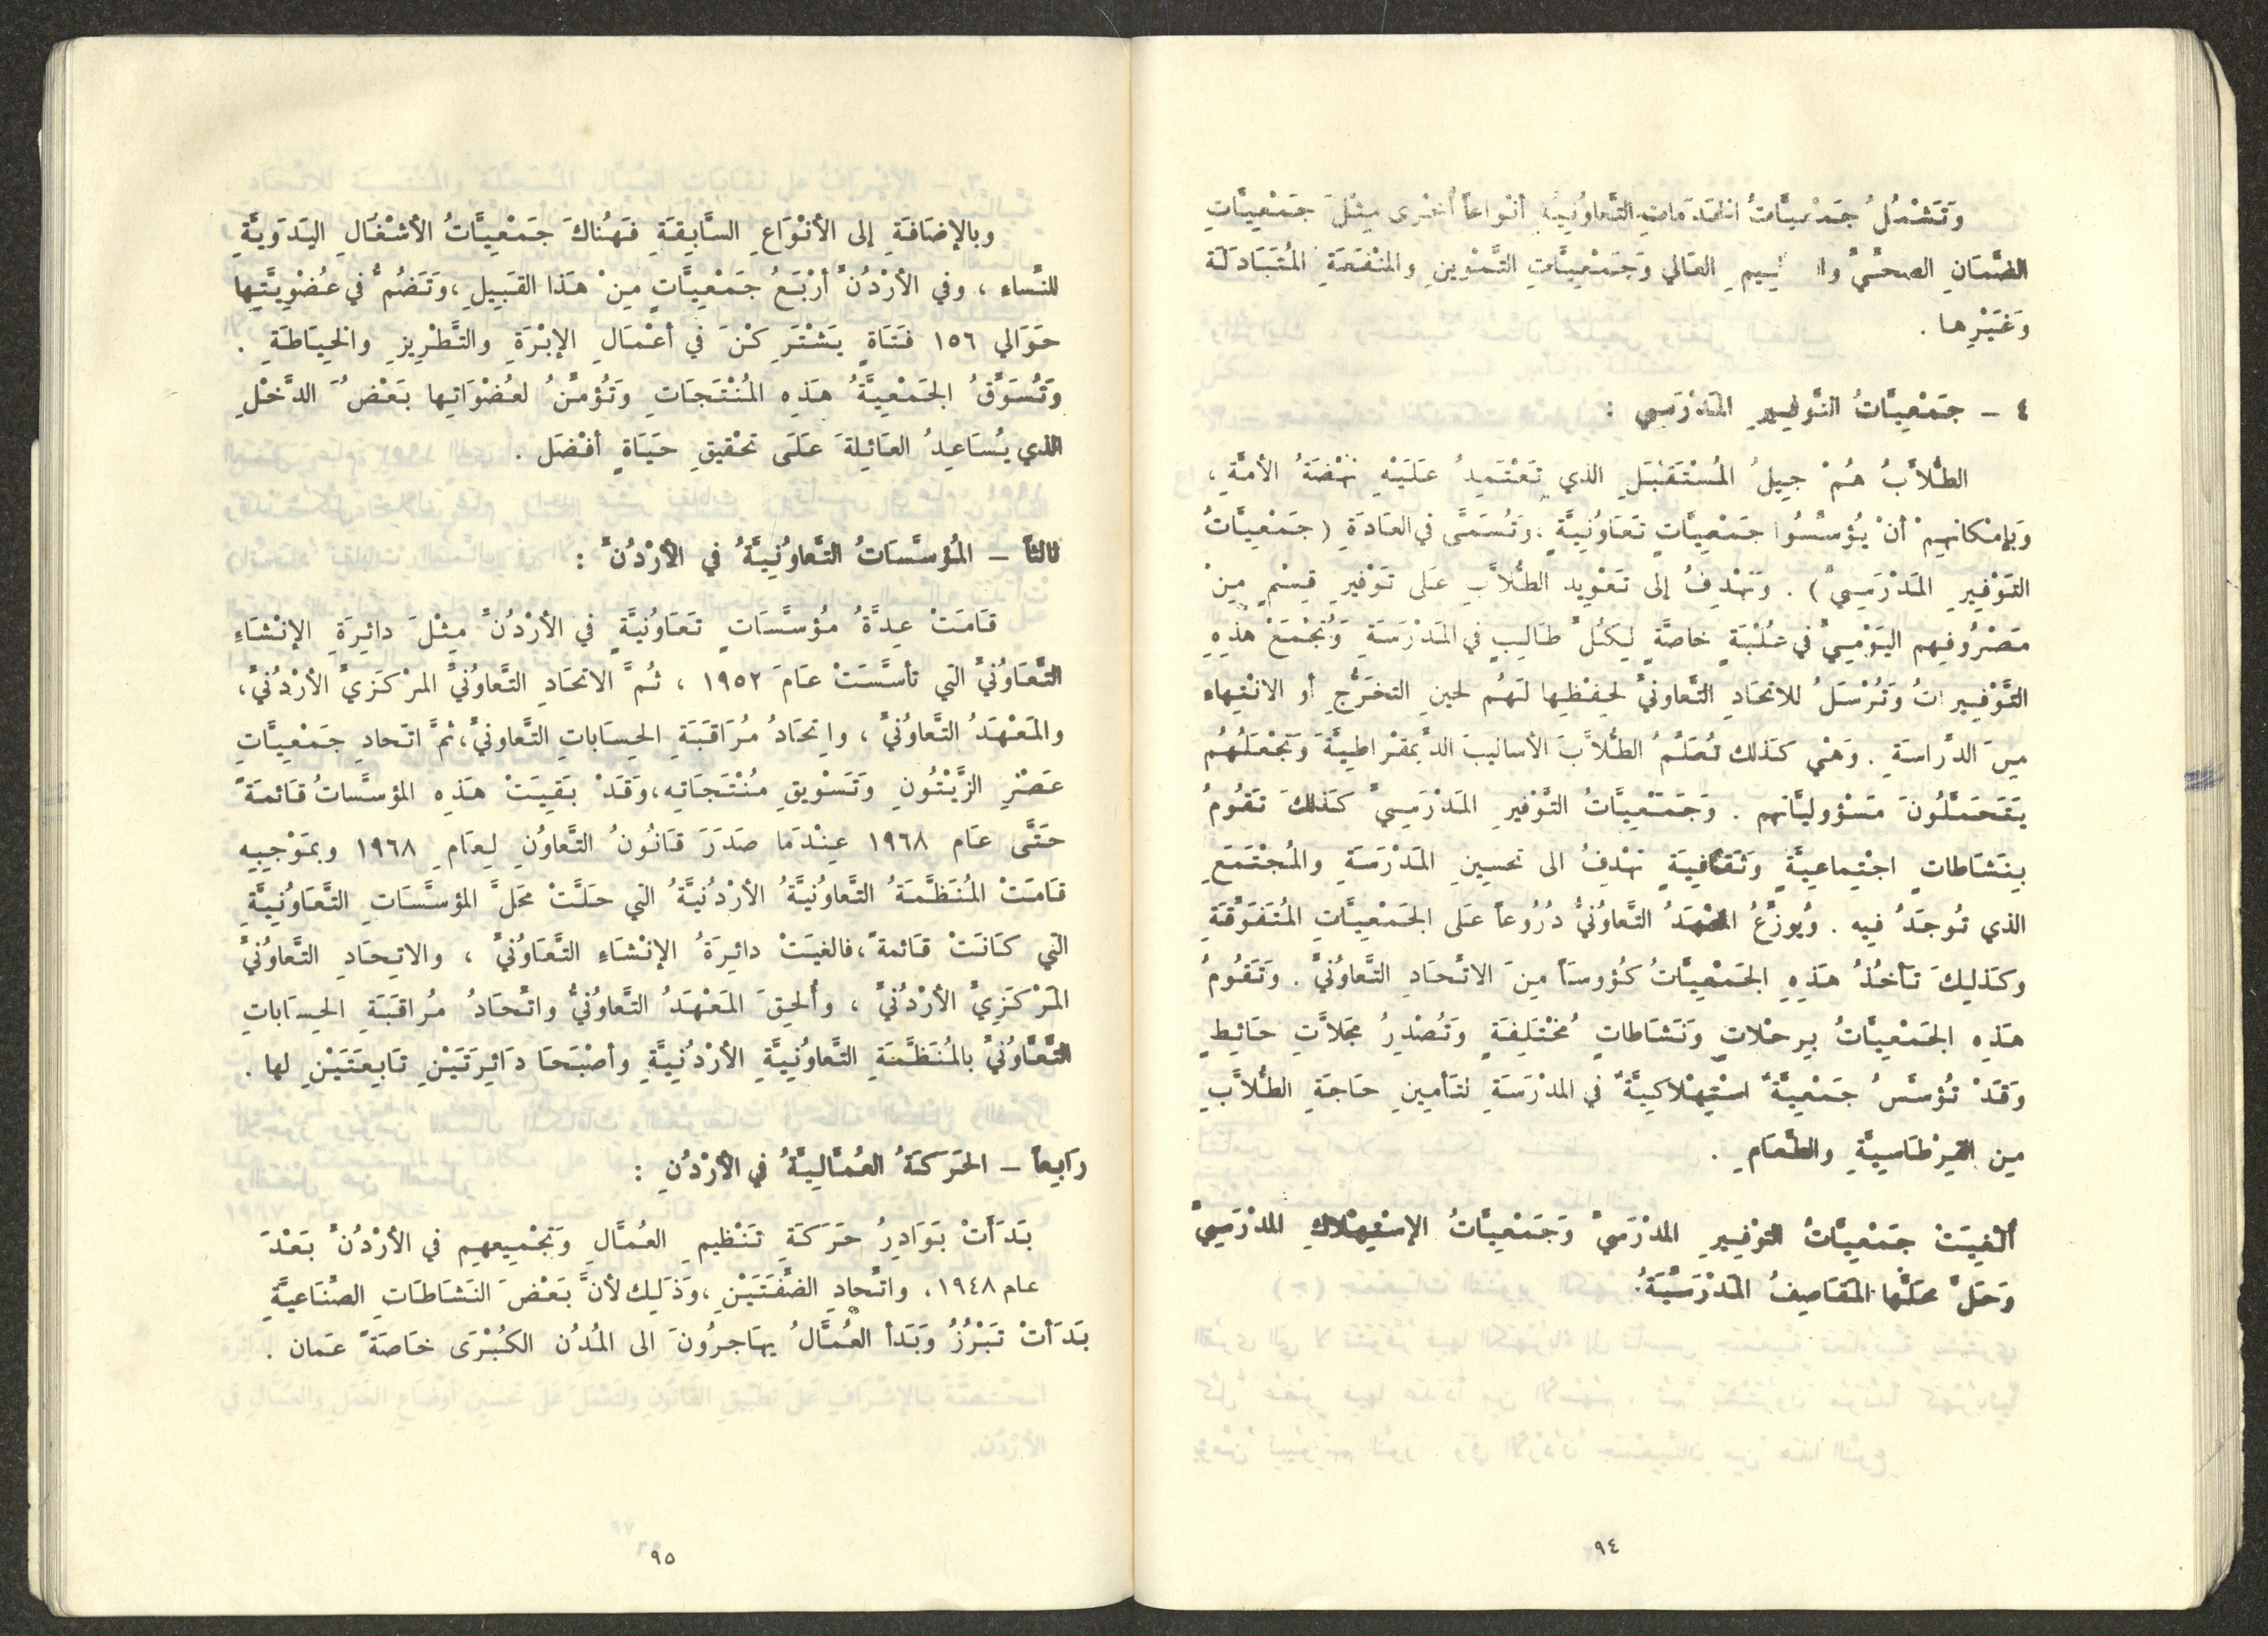 وَتَشْمُلُ جَمْعِيَّاتُ الخَدَمَاتِ التَّعاوُنِيَّةِ أنْواعاً أخْرى مِثْلَ جَمْعِيَّاتِ
الضَّمَانِ الصحِّيِّ والتعليمِ العَالي وَجَمْعِيَّاتِ التَّمْوِينِ والمَنْفَعَةِ المُتَبَادَلَة
وَغَيْرِها .
٤ – جَمْعِيَّاتُ التَّوفيرِ المَدْرَسِي :
الطُّلاَّبُ هُمْ جِيلُ المُسْتَقْبَلِ الذي تَعْتَمِدُ عَلَيْهِ نَهْضَةُ الأمَّةِ ،
وَبِإمْكانِهِمْ أنْ يُؤَسِّسُوا جَمْعِيَّاتٍ تَعَاوُنِيَّةٍ . وَتُسَمَّى في العَادَةِ ( جَمْعِيَّاتُ
التَوْفِيرِ المَدْرَسِيِّ ) . وَتَهْدِفُ إلى تَعْوِيدِ الطُّلاَّبِ عَلى تَوْفيرِ قِسْمٍ مِنْ
مَصْرُوفِهِم اليَوْمِيِّ في عُلْبَةٍ خاصَّةٍ لِكُلِّ طَالِبٍ في المَدْرَسَةِ وَتُجْمَعُ هذِهِ
التَّوْفِيراتُ وَتُرْسَلُ للاتحَادِ التَّعاونيِّ لحِفْظِها لَهُم لحينِ التخَرُّجِ أو الانْتِهاء
مِنَ الدِّراسَةِ . وَهْيَ كَذلك تُعَلِّمُ الطُّلاَّبَ الأساليبَ الدِّيمَقْراطِيَّةَ وَتَجْعَلُهُم
يَتَحَمَّلُونَ مَسْؤوليَّاتِهم . وَجَمْعِيَّاتُ التَّوْفيرِ المَدْرَسِيِّ كَذلكَ تَقُومُ
بِنَشَاطاتٍ اجْتِماعِيَّةٍ وَثَقَافِيَةٍ تَهْدِفُ الى تحسِينِ المَدْرَسَةِ والمُجْتَمَعِ
الذي تُوجَدُ فِيه . وُيوزِّعُ المَعْهَدُ التَّعاوُنيُّ دُرُوعاً عَلى الجَمْعِيَّاتِ المُتَفَوِّقَةِ
وكَذلِكَ تَأخُذُ هَذِهِ الجَمْعِيَّاتُ كُؤوسَاً مِنَ الاتِّحَادِ التَّعاوُنيِّ . وَتَقُومُ
هَذِه الجَمْعِيَّاتُ بِرِحْلاتٍ وَنَشَاطاتٍ مُخْتَلِفَةٍ وَتُصْدِرُ مَجَلاَّتِ حَائِطٍ
وَقَدْ تُؤسَّسُ جَمْعِيَّةٌ اسْتِهْلاكِيَّةٌ في المدْرَسَةِ لتَأمِينِ حَاجَةِ الطُّلاَّبِ
مِن القِرْطَاسِيَّةِ والطَّعَامِ .
ألْغِيَتْ جَمْعِيَّاتُ التوْفيرِ المدْرَسَيِّ وَجَمْعِيَّاتُ الإسْتِهْلاكِ المدْرَسِيِّ
وَحَلَّ محَلَّها المَقَاصِفُ المَدْرَسِيَّةُ.
٩٤
وبالإضَافَةِ إلى الأنْوَاعِ السَّابِقَةِ فَهُناكَ جَمْعِيَّاتُ الأشْغَالِ اليَدَوِيَّةِ
للنِّساءِ ، وفي الأرْدُنِّ أرْبَعُ جَمْعِيَّاتٍ مِنْ هَذا القَبِيلِ ، وَتَضُمُّ في عُضْوِيَّتِها
حَوَالي ١٥٦ فَتَاةٍ يَشْتَرِكْنَ في أعْمَالِ الإبْرَةِ والتَّطْرِيزِ والخِيَاطَةِ .
وَتُسَوِّقُ الجَمْعِيَّةُ هَذِه المُنْتَجَاتِ وَتُؤمِّنُ لعُضْوَاتِها بَعْضَ الدَّخْلِ
الذي يُسَاعِدُ العَائِلةَ عَلَى تحْقيقِ حَيَاةٍ أفْضَل .
ثالثاً – المُؤسَّسَاتُ التَّعاوُنِيَّةُ في الأرْدُنِّ :
قَامَتْ عِدَّةُ مُؤسَّسَاتٍ تَعَاوُنيَّةٍ في الأرْدُنِّ مِثْلَ دائِرَةِ الإنْشَاءِ
التَّعَاوُنيِّ التي تأسَّسَتْ عَامَ ١٩٥٢ ، ثُمَّ الاتحَادِ التَّعاوُنيِّ المرْكَزَيِّ الأرْدُنيِّ ،
والمَعْهَدُ التَّعاوُنيِّ ، وإتحَادُ مُرَاقَبَةِ الحِسَاباتِ التَّعاونيِّ ، ثمَّ اتحادِ جَمْعِيَّاتِ
عَصْرِ الزَّيْتُونِ وَتَسْوِيقِ مُنْتَجَاتِه ، وَقَدْ بَقِيَتْ هَذِه المؤسَّساتُ قَائمَةً
حَتَّى عَام ١٩٦٨ عِنْدَمَا صَدَرَ قَانُونُ التَّعاوُنِ لِعَامِ ١٩٦٨ وبمَوْجِبِه
قَامَتْ المُنَظَّمَةُ التَّعاوُنِيَّةُ الأرْدُنيَّةُ التي حَلَّتْ محَلَّ المؤسَّسَاتِ التَّعَاوُنِيَّةِ
التي كَانَتْ قَائمةً ، فالغيَتْ دائِرَةُ الإنْشَاءِ التَّعَاوُنيِّ ، والاتِحَادِ التَّعاوُنيِّ
المَرْكَزِيِّ الأرْدُنيِّ ، وألحِقَ المَعْهَدُ التَّعاوُنيُّ واتِّحَادُ مُراقَبَةِ الحِسَاباتِ
التَّعَاوُنيِّ بالمُنَظَّمَةِ التَّعاوُنِيَّةِ الأرْدُنِيَّةِ وأصْبَحَا دَائِرَتَيْنِ تَابِعَتَيْنِ لها .
رَابِعاً – الحَرَكَةُ العُمَّالِيَّةُ في الأرْدُنِ :
بَدَأَتْ بَوَادِرُ حَرَكَةِ تَنْظِيمِ العُمَّالِ وَتجْمِيعِهِم في الأرْدُنِّ بَعْدَ
عام ١٩٤٨ ، واتِّحادِ الضَّفَتَيْنِ ، وَذَلِك لأنَّ بَعْضَ النَشَاطَاتِ الصِّنَاعيَّةِ
بَدَأتْ تَبْرُزُ وَبَدَأ العُمَّالُ يهَاجرُونَ الى المُدُن الكُبْرَى خَاصَةً عَمان .
٩٥